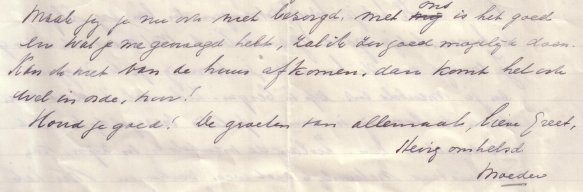 Maak jij je nu ook niet bezorgd, met ons is het goed
en wat je me gevraagd hebt, zal ik zoo goed mogelijk doen.
Kan de niet van de huur afkomen, dan komt het ook
wel in orde, hoor!
Houd je goed! De groeten van allemaal, lieve Greet,
Stevig omhelsd
Moeder